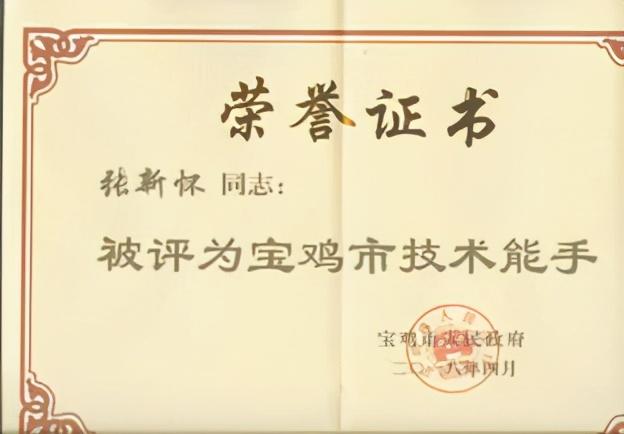 荣誉证书
张新怀 同志：
被评为宝鸡市技术能手
宝鸡市人民政府
二〇一八年四月